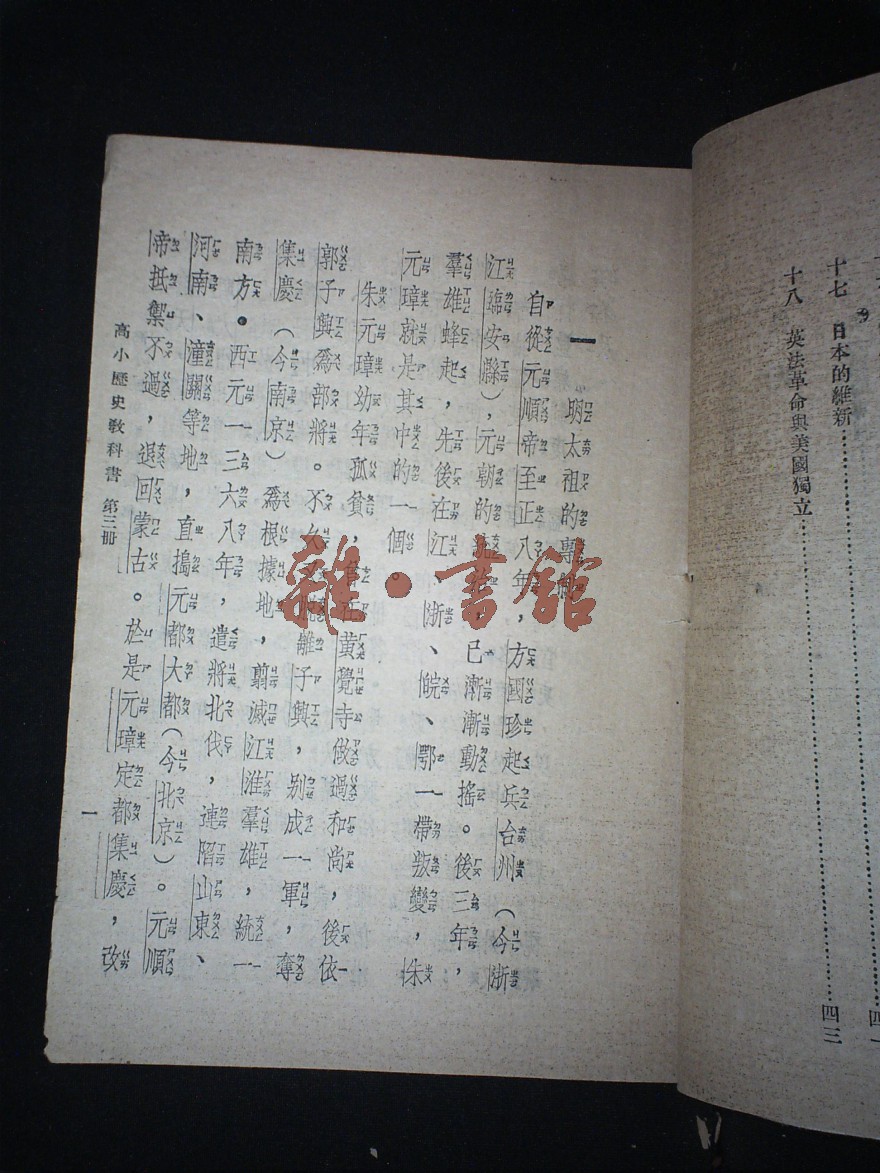 十七 日本的維新……四一
十八 英法革命與美國獨立……四三
一 明太祖的專制
自從元順帝至正八年，方國珍起兵台州（今浙
江臨安縣），元朝的統治，已漸漸動搖。後三年，
羣雄蜂起，先後在江、浙、皖、鄂一帶叛變，朱
元璋就是其中的一個。
朱元璋幼年孤貧，曾在黃覺寺做過和尚，後依
郭子興爲部將。不久又脫離子興，別成一軍，奪
集慶（今南京）爲根據地，翦滅江淮羣雄，統一
南方。西元一三六八年，遣將北伐，連陷山東、
河南、潼關等地，直搗元都大都（今北京）。元順
帝抵禦不過，退回蒙古。於是元璋定都集慶，改
高小歷史教科書 第三冊 一
雜·書館